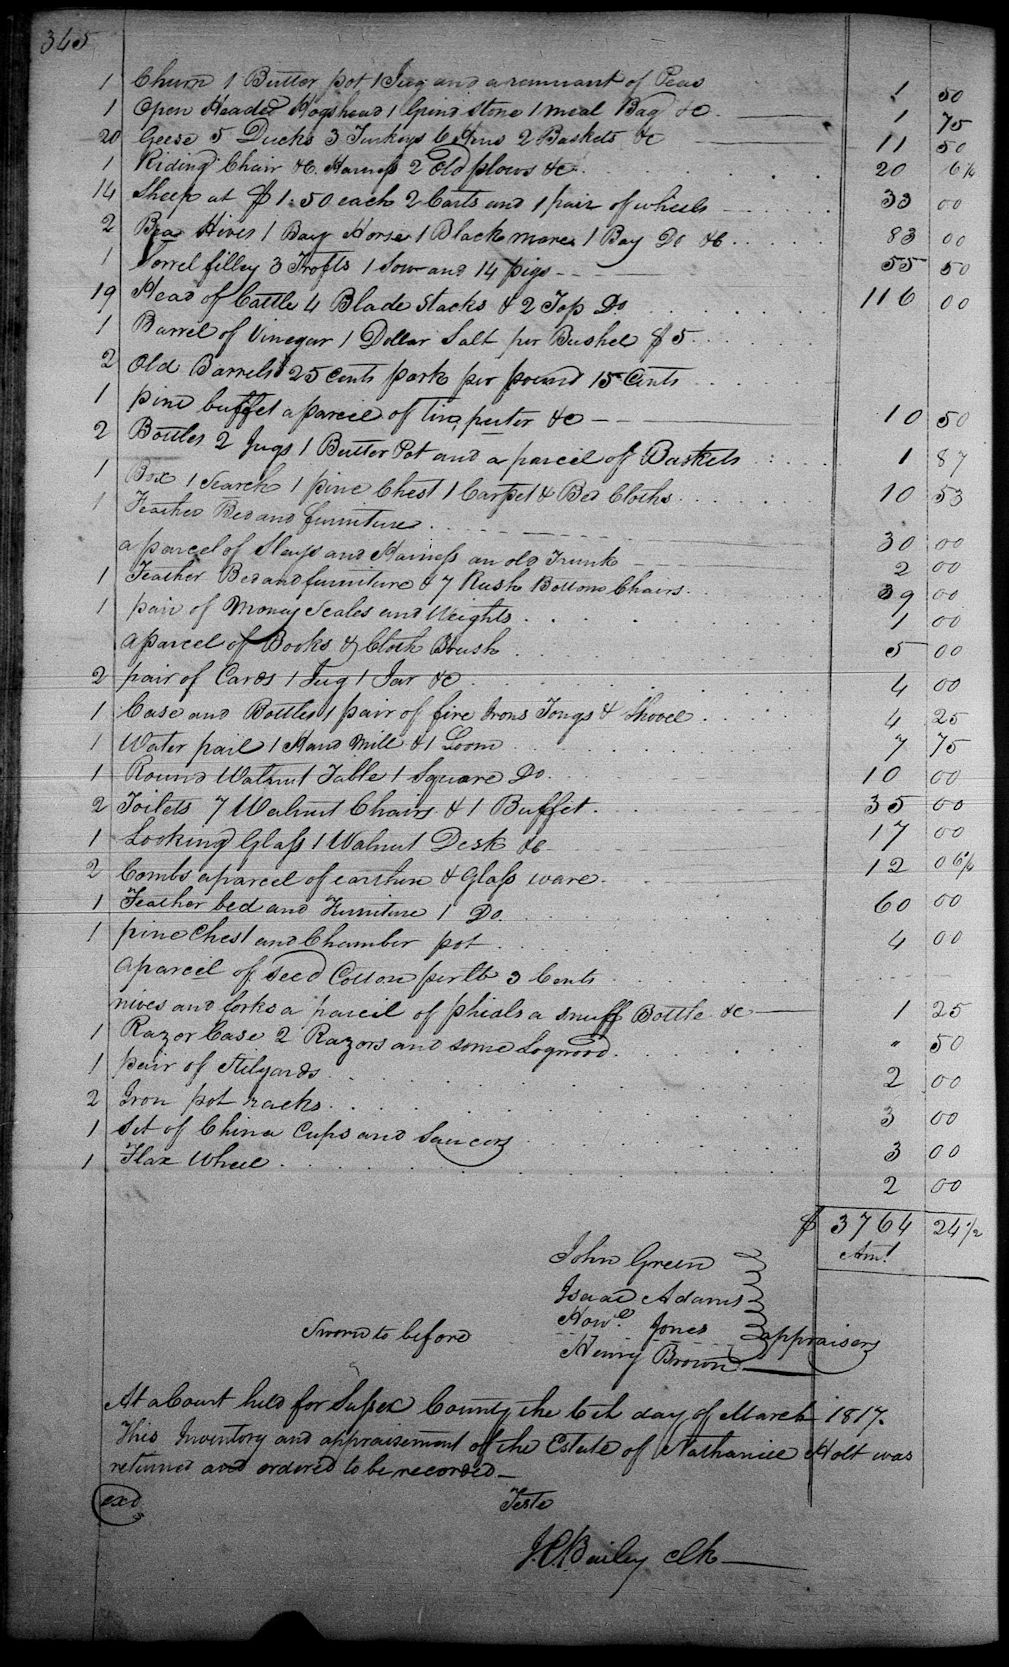 345
1 Churn 1 Butter pot 1 Jug and a remnant of Peas 1 50
1 Open Headed Hogshead 1 Grind Stone 1 meal Bag &c. 1 75
20 Geese 5 Ducks 3 Turkeys 6 Hens 2 Baskets &c 11 50
1 Riding Chair &c. Harness 2 Old plows &c 20 6¼
14 Sheep at $1.50 each 2 Carts and 1 pair of wheels 33 00
2 Bea Hives 1 Bay Horse 1 Black mare 1 Bay Do &c 83 00
1 Sorrel filley 3 Trofts 1 Sow and 14 pigs 55 50
19 Head of Cattle 4 Blade Stacks & 2 Top Do 116 00
1 Barrel of Vinegar 1 Dollar Salt per Bushel $5
2 Old Barrels 25 Cents pork per pound 15 Cents
1 pine buffet a parcel of tin, puter &c 10 50
2 Bottles 2 Jugs 1 Butter Pot and a parcel of Baskets 1 87
1 Box 1 Search 1 pine Chest 1 Carpet & Bed Cloths 10 53
1 Feather Bed and furniture 30 00
a parcel of Slays and Harness an old Trunk 2 00
1 Feather Bed and furniture & 7 Rush Bottom Chairs 39 00
1 pair of Money Scales and Weights 1 00
a parcel of Books & Cloth Brush 5 00
2 pair of Cards 1 Jug 1 Jar &c 4 00
1 Case and Bottles 1 pair of fire Irons Tongs & Shovel 4 25
1 Water pail 1 Hand Mill & 1 Loom 7 75
1 Round Walnut Table 1 Square Do. 10 00
2 Toilets 7 Walnut Chairs & 1 Buffet. 35 00
1 Looking Glass 1 Walnut Desk &c 17 00
2 Combs a parcel of earthen & Glass ware 12 06¼
1 Feather bed and Furniture 1 Do. 60 00
1 pine Chest and Chamber pot 4 00
a parcel of Seed Cotton per lb 3 Cents
nives and forks a parcel of phials a snuff Bottle &c 1 25
1 Razor Case 2 Razors and some Logwood. " 50
1 pair of Stilyards 2 00
2 Iron pot racks 3 00
1 Set of China Cups and Saucers 3 00
1 Flax Wheel 2 00
$ 3764 24½
Amt.
John Green
Isaac Adams
Howl. Jones
Sworn to before
appraisers
Henry Brown
At a Court held for Sussex County the 6th day of March 1817.
This Inventory and appraisement of the Estate of Nathaniel Holt was
returned and ordered to be recorded
exd
Teste
J.C. Bailey Clk